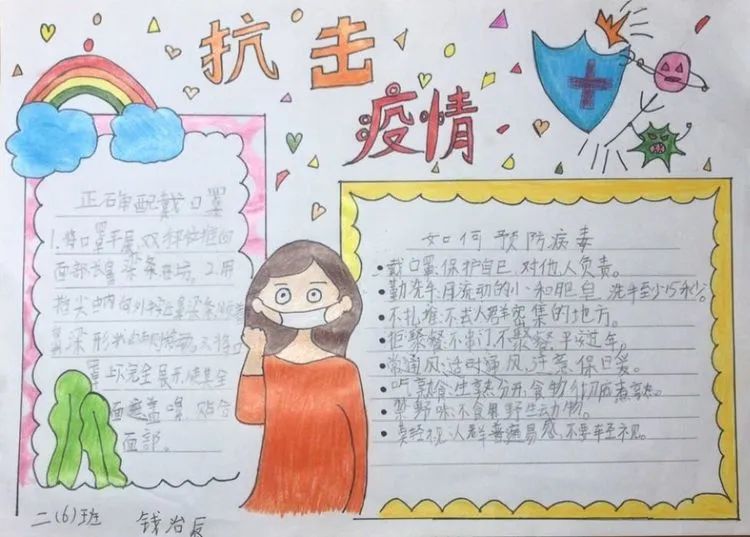 抗击
疫情
正确配戴口罩
1.将口罩平展,双手平拉推向
面部长鼻梁条在
2.用
指尖由内向外按鼻梁条顺着
鼻梁形状
罩上下完全展开,使其全
面遮盖
面部。
如何预防病毒
•戴口罩:保护自己,对他人负责。
•勤洗手:用流动的小和肥皂,洗手至少15秒。
•不扎堆:不去人群密集的地方。
•拒聚餐:不串门,不聚餐,平安过年。
•常通风:适时通风,注意保暖。
•吃熟食:生熟分开,食物
煮熟。
•禁野味:不食用野生动物。
•莫轻视:人群普遍易感,不要轻视。
二(6)班 钱治辰